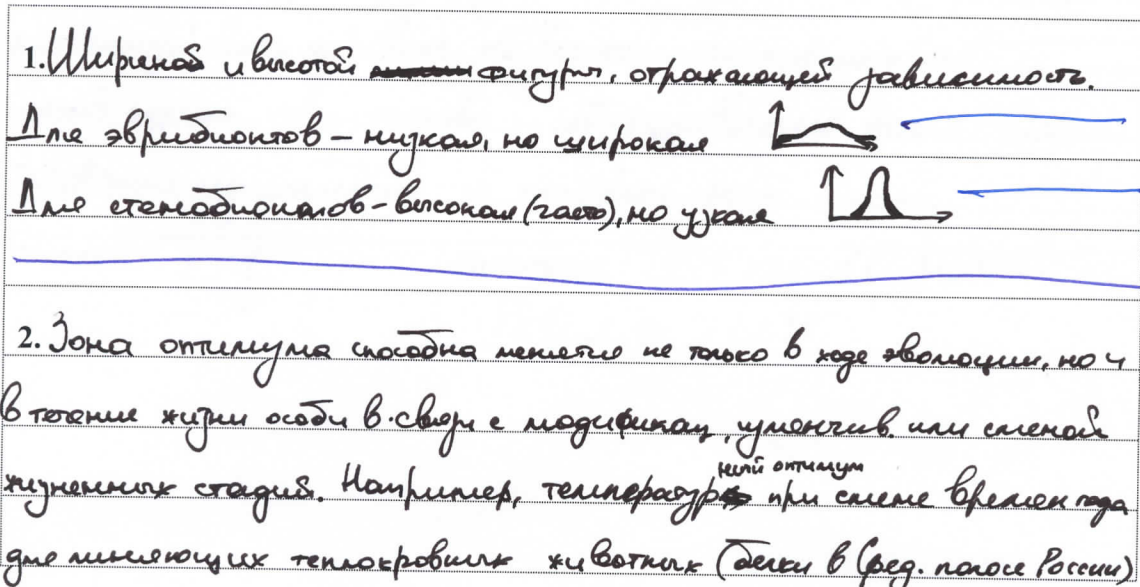 1. Шириной и высотой фигуры, отражающей зависимость.
Для эврибионтов – низкая, но широкая
Для стенобионтов – высокая (часто), но узкая
2. Зона оптимума способна меняться не только в ходе эволюции, но и
в течение жизни особи в связи с модификац. изменчив. или сменой
жизненных стадий. Например, температурный оптимум при смене времен года
для линяющих теплокровных животных (белки в сред. полосе России)